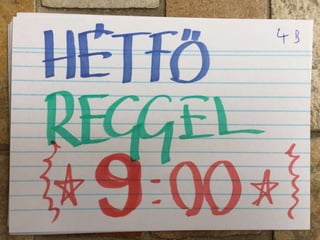 4B
HÉTFŐ
REGGEL
9:00